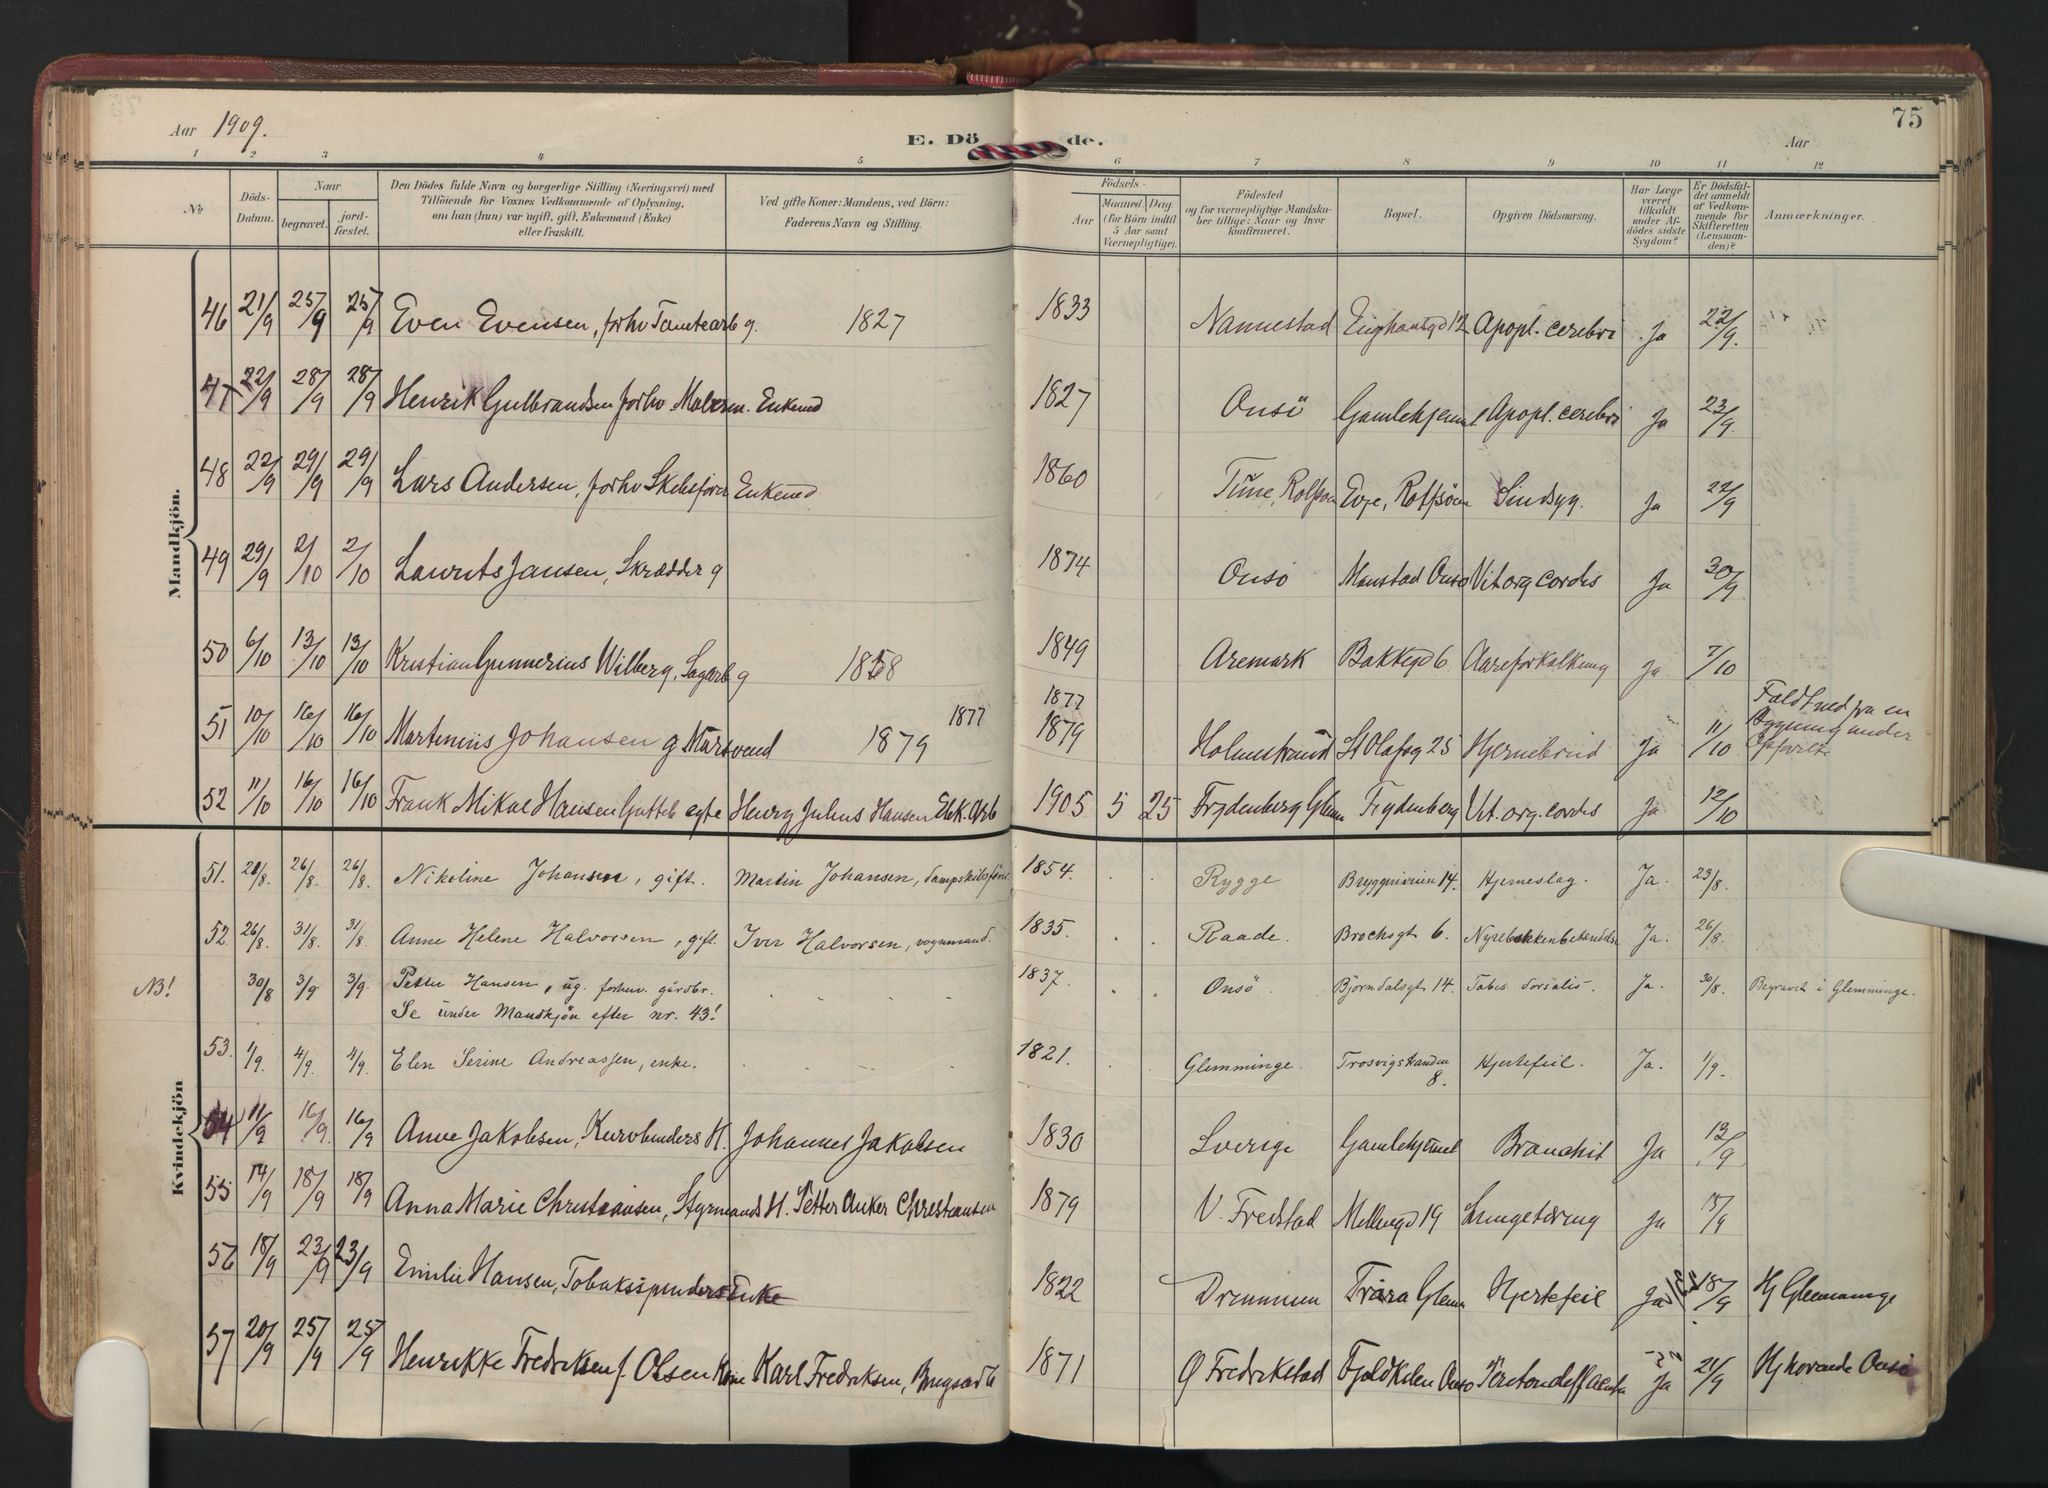 75
Aar 1909.
E. Dö de.
Aar
1 2 3 4 5 6 7 8 9 10 11 12
No
Döds-Datum.
Naar
begravet.
jord-fæstet.
Den Dödes fulde Navn og borgerlige Stilling (Næringsvei) med
Tilföiende for Voxnes Vedkommende af Oplysning,
om han (hun) var ugift, gift, Enkemand (Enke)
eller fraskilt.
Ved gifte Koner: Mandens, ved Börn:
Faderens Navn og Stilling.
Födsels-
Aar
Maaned. Dag.
(for Börn indtil
5 Aar samt
Værnepligtige).
Födested
og for værnepligtige Mandska-
ber tillige: Naar og hvor
konfirmeret.
Bopæl.
Opgiven Dödsaarsag.
Har Læge
været
tilkaldt
under Af-
dödes sidste
Sygdom?
Er Dödsfal-
det anmeldt
af Vedkom-
mende for
Skifteretten
(Lensman-
den)?
Anmærkninger.
Mandkjön.
46 21/9 25/9 25/9 Even Evensen, forhv Tomtearb g. 1827 1833 Nannestad 12 Apopl. cerebri Ja 22/9.
47 22/9 28/9 28/9 Henrik Gulbrandsen forhv. Malerm. Enkemd 1827 Onsö Gamlehjemmet Apopl. cerebri Ja 23/9.
48 22/9 29/9 29/9 Lars Andersen, forhv Skibsförer Enkemd 1860 Tune, Rolfsöen Evje, Rolfsöen Sindsyg. Ja 22/9
49 29/9 2/10 2/10 Laurits Jansen, Skrædder g 1874 Onsö Manstad Onsö Vit org cordis Ja 30/9
50 6/10 13/10 13/10 Kristian Gunnerius Wilberg, Sagarb g 1858 1849 Aremark Bakkegd 6 Aareforkalkning Ja 7/10
51 10/10 16/10 16/10 Martinius Johansen g Mursvend 1879 1877 1877 1879 Holmestrand St Olafsg 25 Hjernebrud Ja 11/10 Faldt ned fra en
Bygning under
52 11/10 16/10 16/10 Frank Mikal Hansen Gutteb egte Henry Julius Hansen Elek. Arb 1905 5 25 Frydenberg Glem Frydenberg Vit. org. cordis Ja 12/10
Kvindekjön
51. 20/8. 26/8. 26/8. Nikoline Johansen, gift. Martin Johansen, dampskibsförer 1854. Rygge Bryggeriveien 14. Hjerneslag. Ja. 23/8.
52. 26/8. 31/8. 31/8. Anne Helene Halvorsen, gift. Iver Halvorsen, vognmand. 1835. Raade. Brochsgt 6. Nyrebækkenbetændelse Ja. 26/8.
NB! 30/8 3/9 3/9. Petter Hansen, ug. forhv. gårdbr. 1837. Onsö Björndalsgt 14. Tabes dorsalis. Ja. 30/8. Begravet i Glemminge.
Se under Mandkjön efter nr. 43!
53. 1/9. 4/9. 4/9. Elen Serine Andreassen, enke. 1821. Glemminge. Trosvigstranden
8. Hjertefeil. Ja. 1/9.
54 11/9 16/9. 16/9 Anne Jakobsen, Kurvbinders H. Johannes Jakobsen 1830 Sverige Gamlehjemmet Bronchit Ja 13/9
55 14/9 18/9 18/9 Anna Marie Christiansen, Styrmands H. Petter Anker Christiansen 1879 V. Fredstad Mellemgd 19 Lungetæring Ja 15/9
56 18/9 23/9 23/9 Emilie Hansen, Tobaksspinders Enke 1822 Drammen Trara Glem Hjertefeil Ja 18/9 Hj Glemminge
57 20/9 25/9 25/9 Henrikke Fredriksen f. Olsen Kone Karl Fredriksen, Brugsarb 1871 Ø Fredrikstad Fjeldkilen Onsö Peritonitis acuta Ja 21/9 Hj hørende Onsö